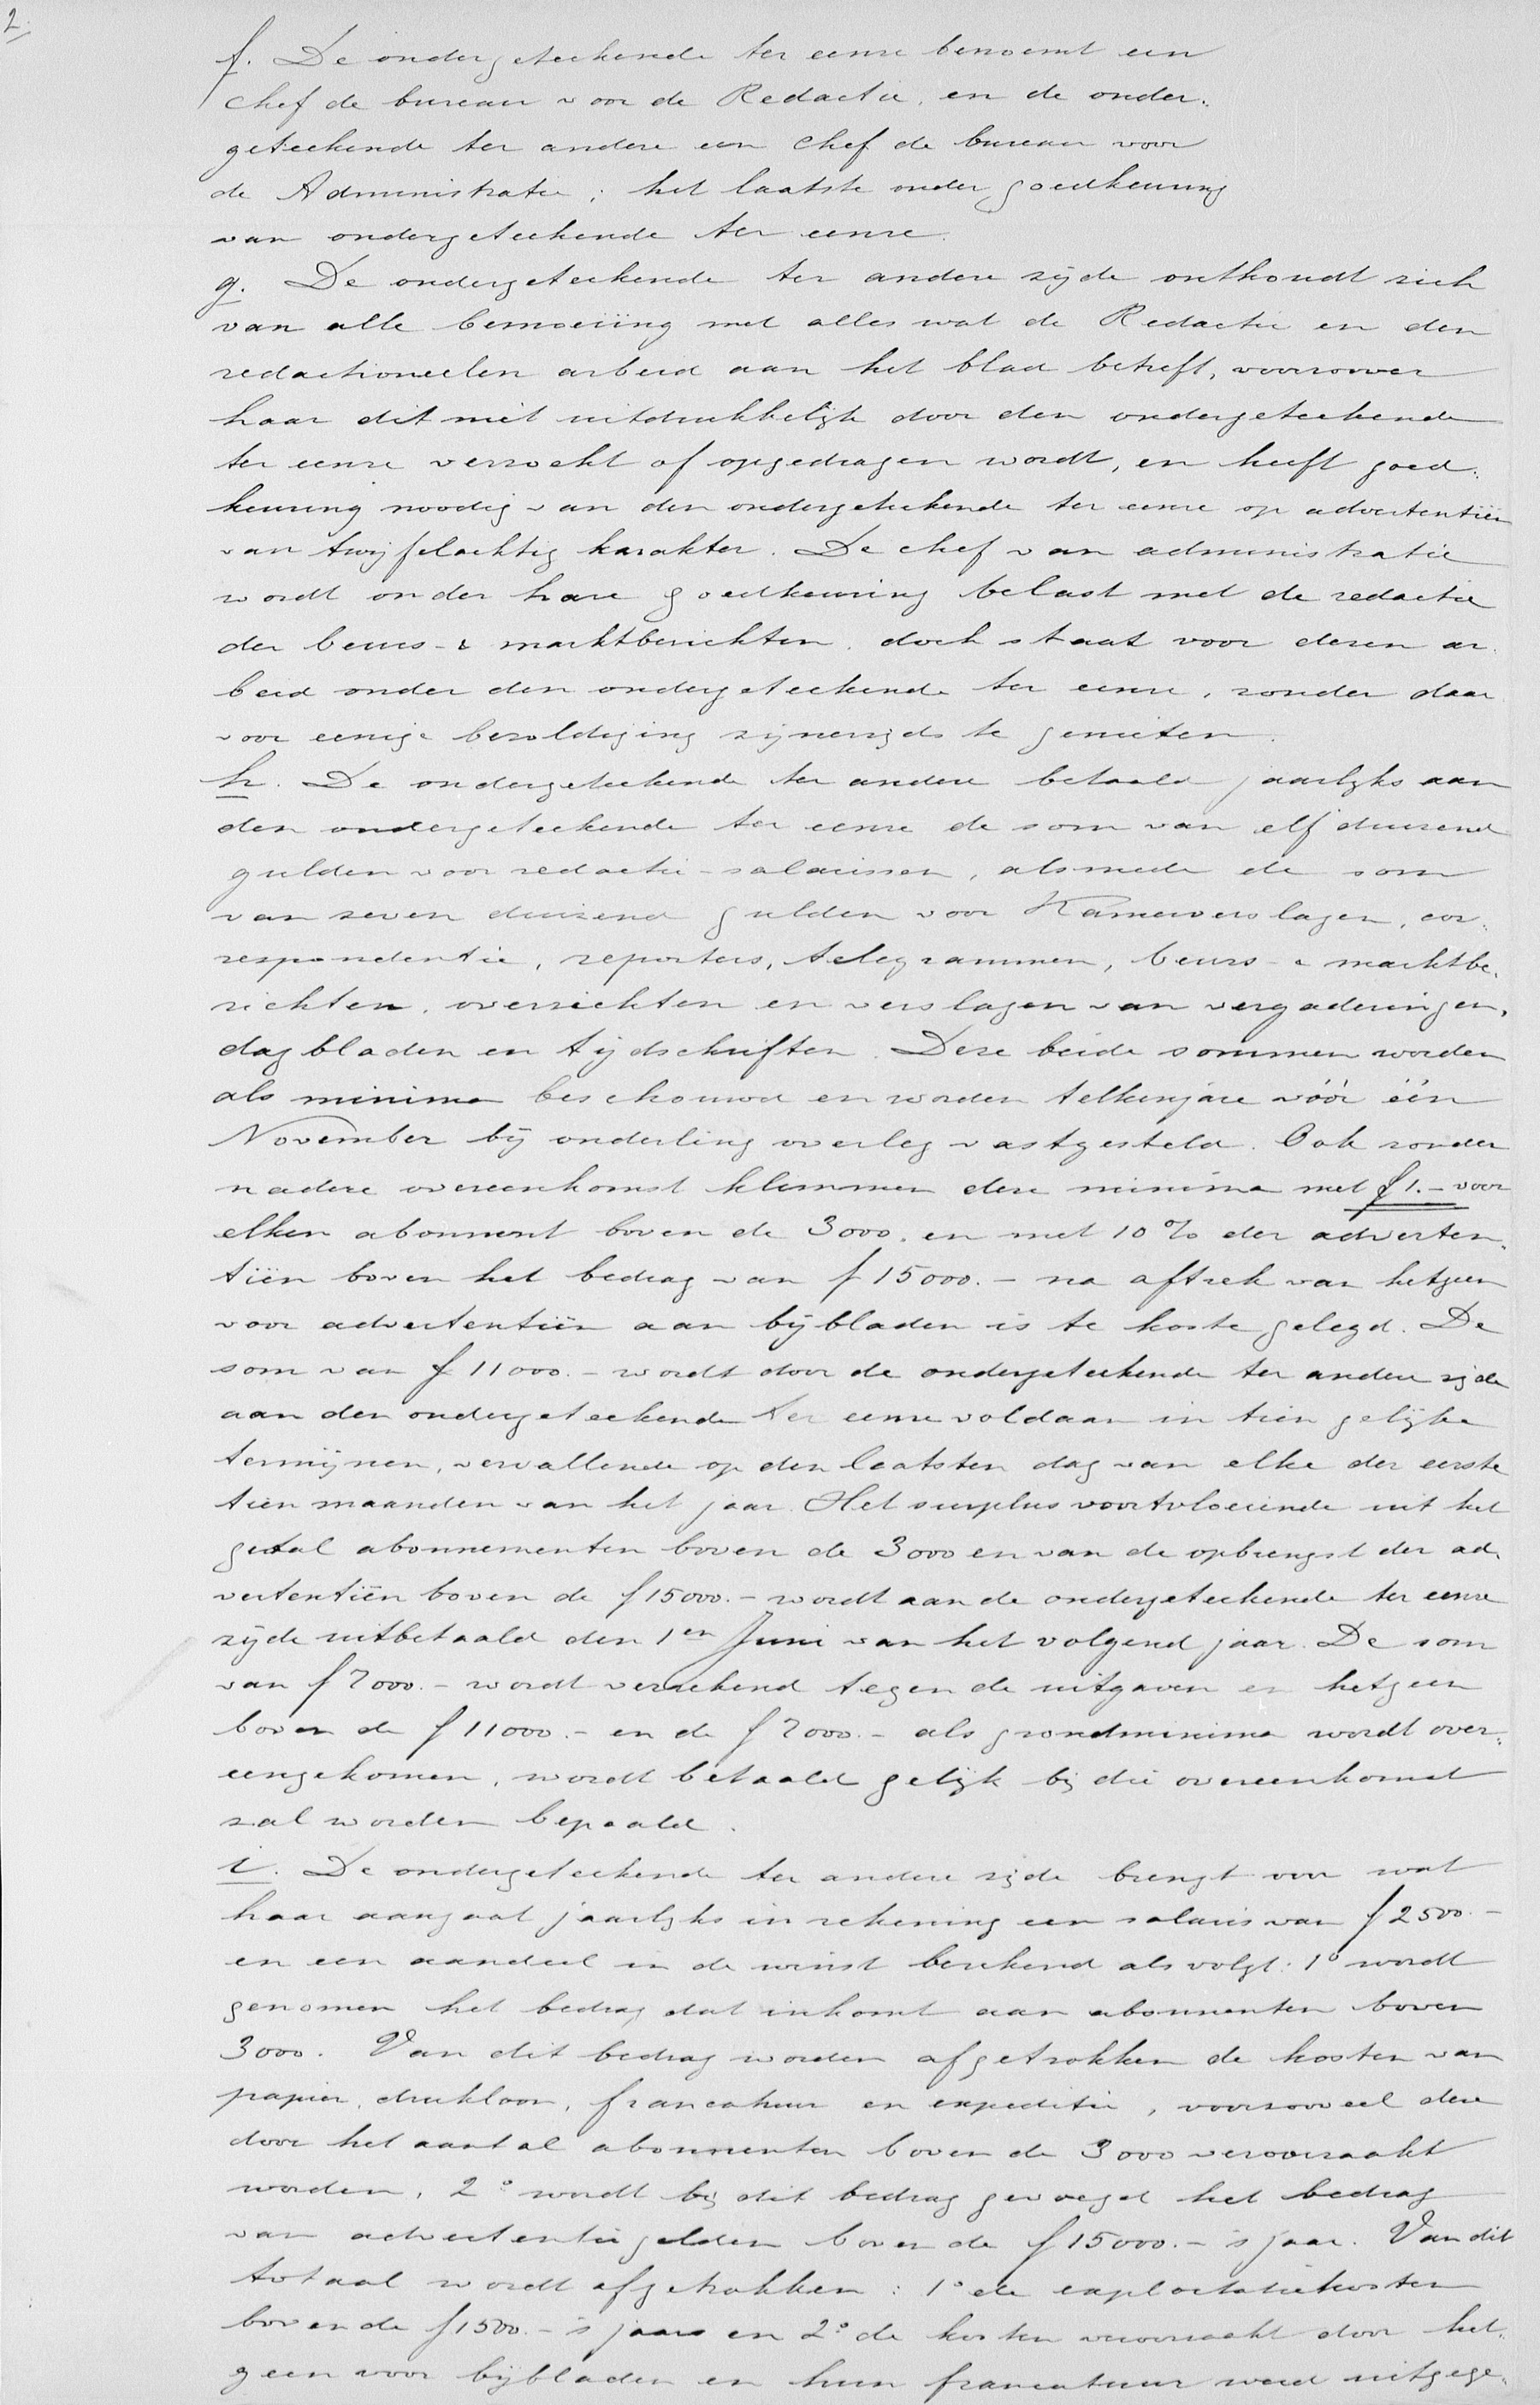 2.
f. De ondergeteekende ter eenre benoemt een
chef de bureau voor de Redactie, en de onder-
geteekende ter andere een chef de bureau voor
de Administratie; het laatste onder goedkeuring
van ondergeteekende ter eenre.
g. De ondergeteekende ter andere zijde onthoudt zich
van alle bemoeiïng met alles wat de Redactie en den
redactioneelen arbeid aan het blad betreft, voorzoover
haar dit niet uitdrukkelijk door den ondergeteekende
ter eenre verzocht of opgedragen wordt, en heeft goed-
keuring noodig van den ondergeteekende ter eenre op advertentiën
van twijfelachtig karakter. De chef van administratie
wordt onder hare goedkeuring belast met de redactie
der beurs- & marktberichten, doch staat voor dezen ar-
beid onder den ondergeteekende ter eenre, zonder daar
voor eenige bezoldiging zijnerzijds te genieten.
h. De ondergeteekende ter andere betaald jaarlijks aan
den ondergeteekende ter eenre de som van elf duizend
gulden voor redactie-salarissen, alsmede de som
van zeven duizend gulden voor Kamerverslagen, cor-
respondentie, reporters, telegrammen, beurs- & marktbe-
richten, overzichten en verslagen van vergaderingen,
dagbladen en tijdschriften. Deze beide sommen worden
als minima beschouwd en worden telkenjare vóór één
November bij onderling overleg vastgesteld. Ook zonder
nadere overeenkomst klimmen deze minima met f 1.- voor
elken abonnent boven de 3000, en met 10% der adverten-
tiën boven het bedrag van f 15000.- na aftrek van hetgeen
voor advertentiën aan bijbladen is te koste gelegd. De
som van f 11000.- wordt door de ondergeteekende ter andere zijde
aan den ondergeteekende ter eenre voldaan in tien gelijke
termijnen, vervallende op den laatsten dag van elke der eerste
tien maanden van het jaar. Het surplus voortvloeiende uit het
getal abonnementen boven de 3000 en van de opbrengst der ad-
vertentiën boven de f 15000.- wordt aan de ondergeteekende ter eenre
zijde uitbetaald den 1en Juni van het volgend jaar. De som
van f 7000.- wordt verrekend tegen de uitgaven en hetgeen
boven de f 11000.- en de f 7000.- als grondminima wordt over-
eengekomen, wordt betaald gelijk bij die overeenkomst
zal worden bepaald.
i. De ondergeteekende ter andere zijde brengt voor wat
haar aangaat jaarlijks in rekening een salaris van f 2500.-
en een aandeel in de winst berekend als volgt: 1o wordt
genomen het bedrag dat inkomt aan abonnenten boven
3000. Van dit bedrag worden afgetrokken de kosten van
papier, drukloon, francatuur en expeditie, voorzooveel deze
door het aantal abonnenten boven de 3000 veroorzaakt
worden, 2o wordt bij dit bedrag gevoegd het bedrag
van advertentiegelden boven de f 15000.- 's jaar. Van dit
totaal wordt afgetrokken: 1o de exploitatiekosten
boven de f 1500.- 's jaars en 2o de kosten veroorzaakt door het-
geen voor bijbladen en hun francatuur werd uitgege-